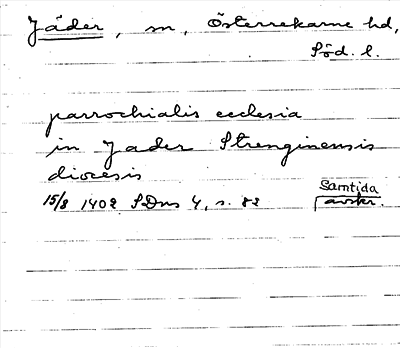 Jäder, sn, Österrekarne hd,
Söd. l.
parrochialis ecclesia
in Jader Strenginensis
diocesis
15/8 1402 SDns 4, s. 82
Samtida
avskr.